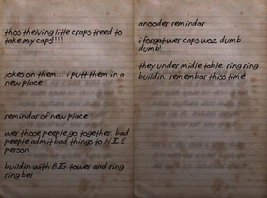 thos theiving little craps treed to
take my caps!!!
jokes on them... i put them in a
new place
remindar of new place
wer those peeple go together. bad
peeple admit bad things to N.I.E
person
buildin with B.I.G tower and ring
ring bel
anooder remindar
i forgat wer caps woz dumb
dumb!
they under midle table. ring ring
buildin. remembar thiss time